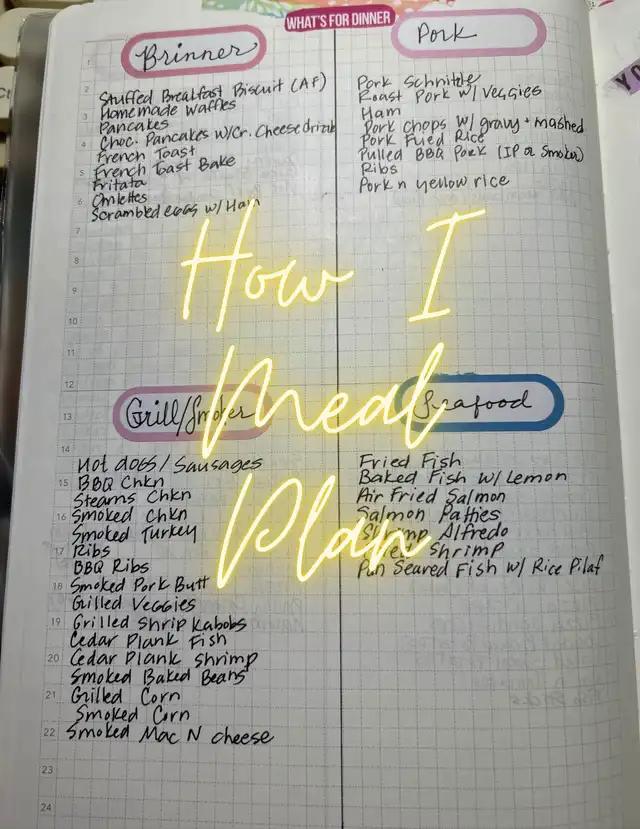 WHAT'S FOR DINNER
Brinner
Stuffed Breakfast Biscuit (AF)
Homemade Waffles
Pancakes
Choc. Pancakes w/Cr. Cheese drizzle
French Toast
French Toast Bake
Fritata
Omlettes
Scrambled eggs w/ Ham
Pork
Pork Schnittle
Roast Pork w/ Veggies
Ham
Pork Chops w/ gravy + mashed
Pork Fried Rice
Pulled BBQ Pork (IP or Smoker)
Ribs
Pork n yellow rice
How I
Meal
Plan
Grill/Smoker
Hot dogs / Sausages
BBQ Chkn
Stearns Chkn
Smoked Chkn
Smoked Turkey
Ribs
BBQ Ribs
Smoked Pork Butt
Grilled Veggies
Grilled Shrip Kabobs
Cedar Plank Fish
Cedar Plank Shrimp
Smoked Baked Beans
Grilled Corn
Smoked Corn
Smoked Mac N cheese
Seafood
Fried Fish
Baked Fish w/ Lemon
Air Fried Salmon
Salmon Patties
Shrimp Alfredo
Shrimp
Pan Seared Fish w/ Rice Pilaf
1
2
3
4
5
6
7
8
9
10
11
12
13
14
15
16
17
18
19
20
21
22
23
24
YO